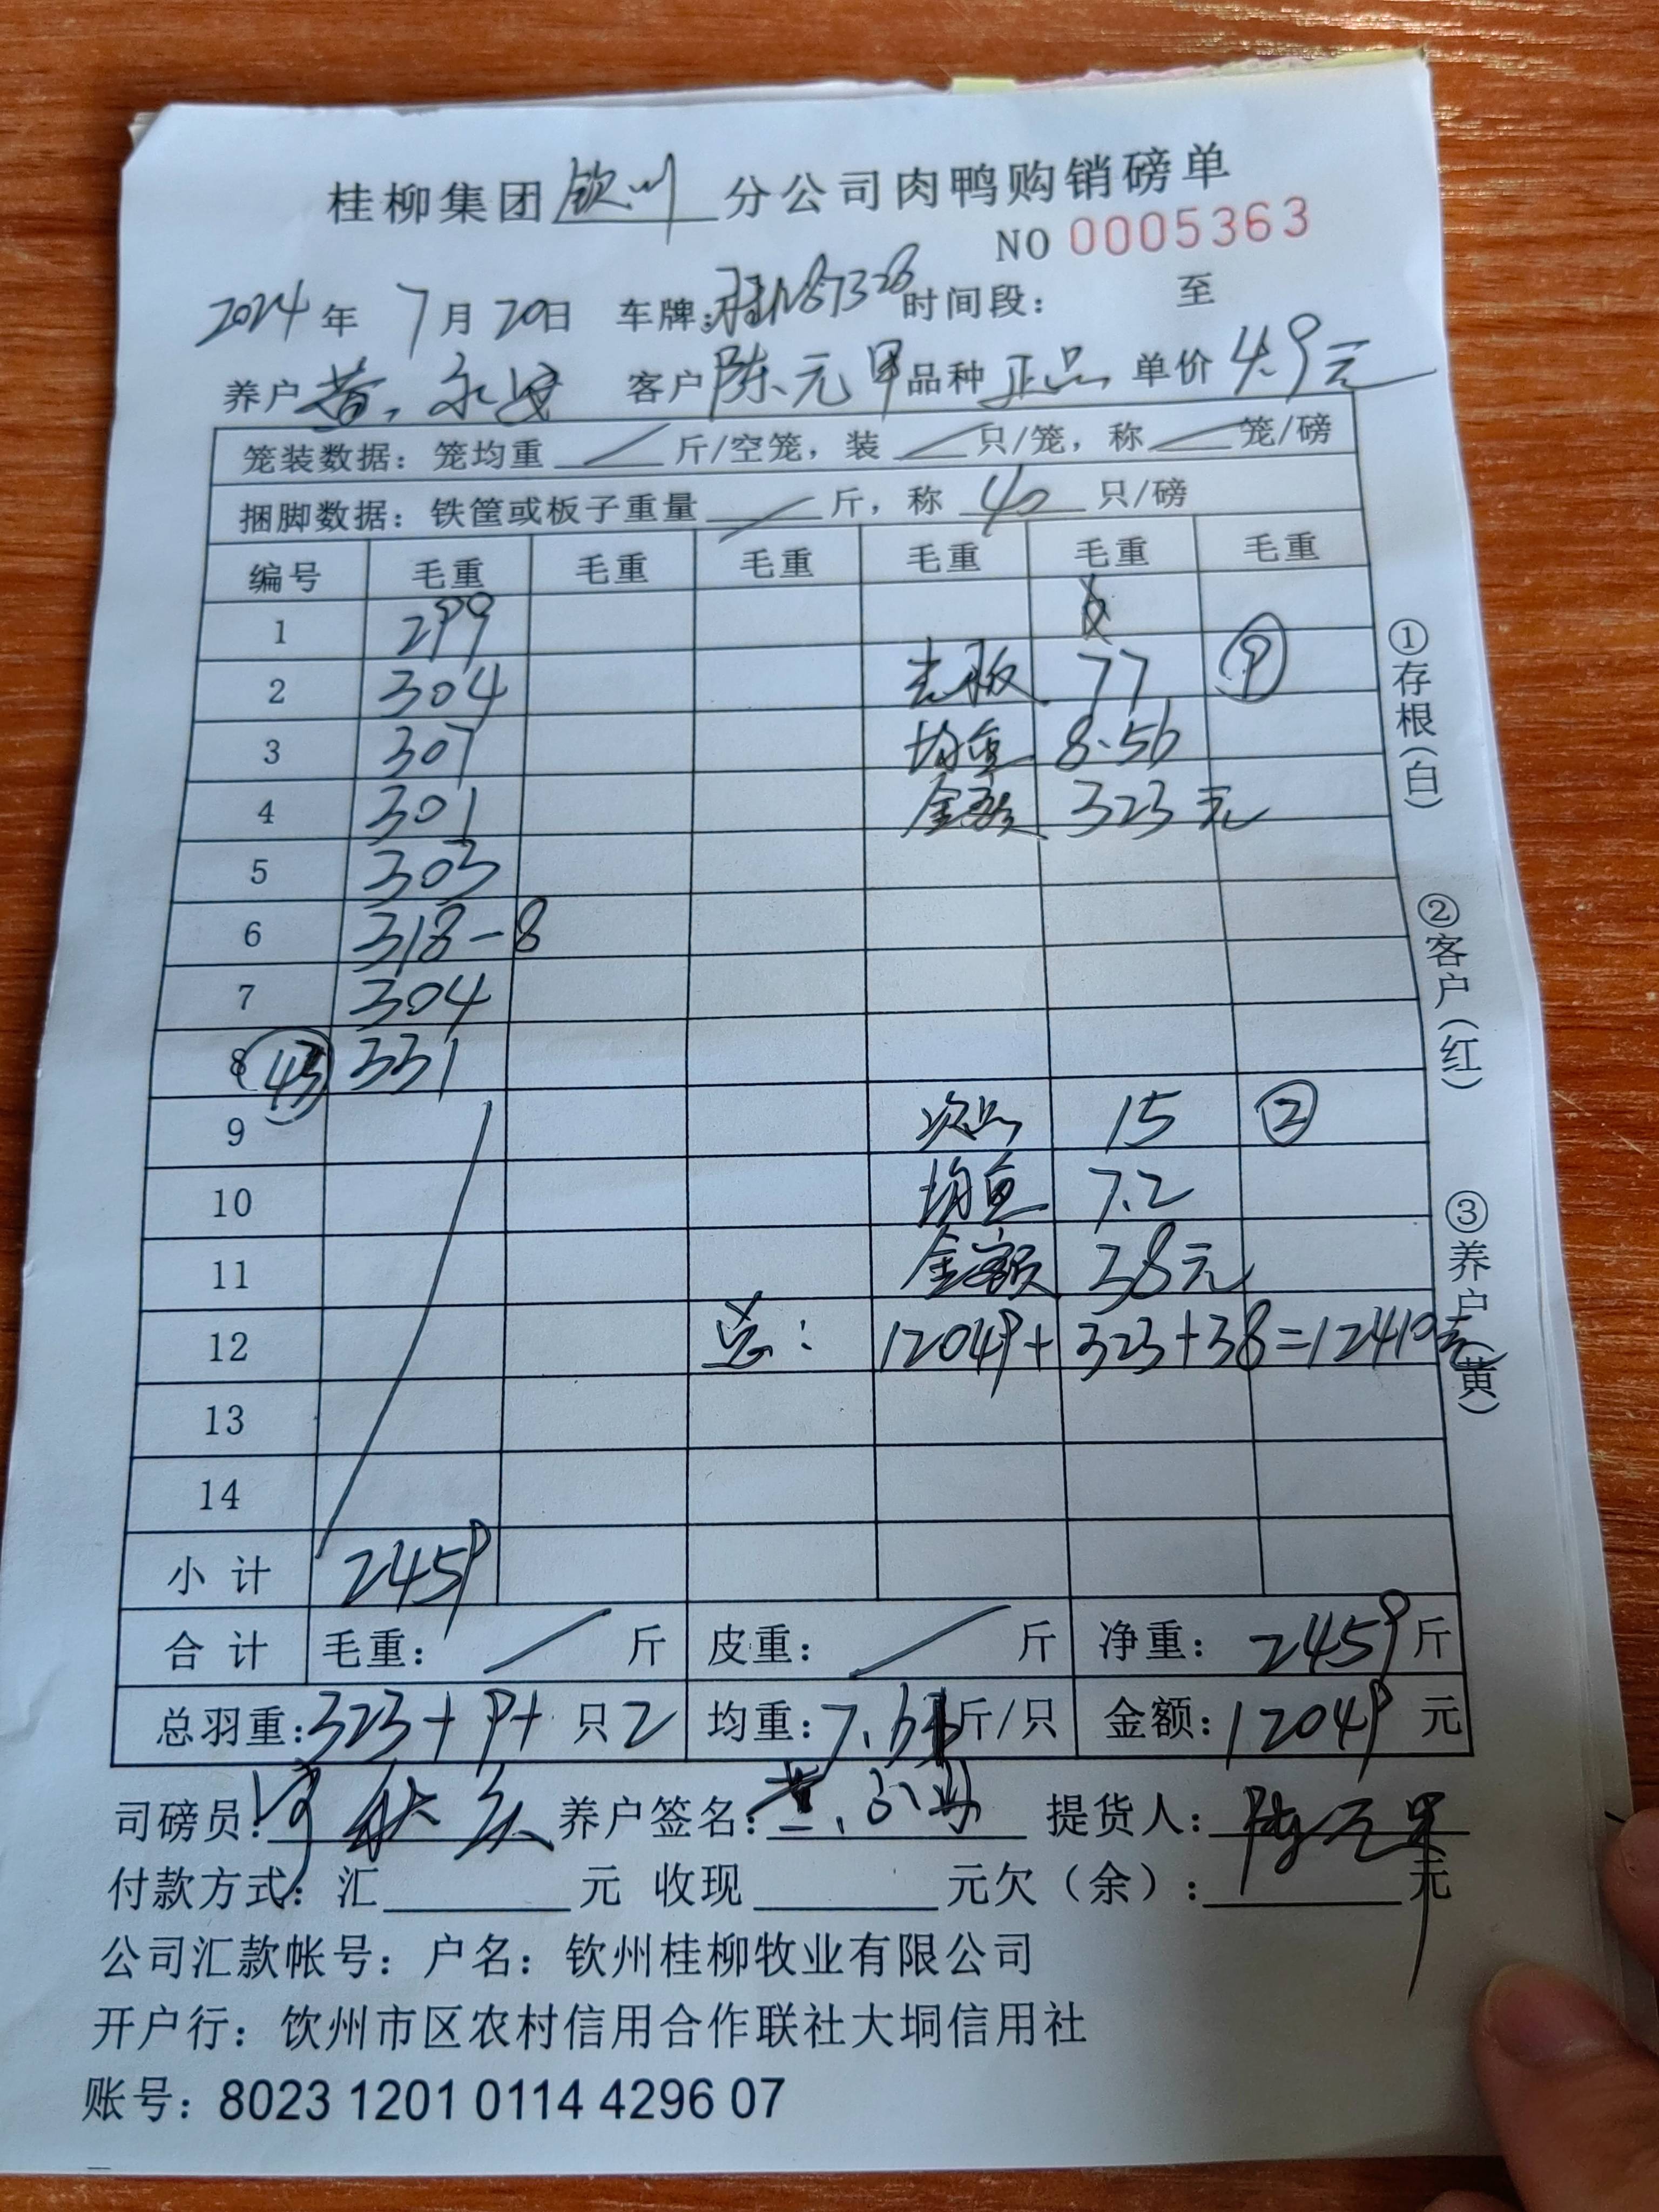 桂柳集团钦州分公司肉鸭购销磅单
NO 0005363
2024年 7月20日 车牌:桂N87328 时间段: 至
养户 黄 永 客户 陈元甲 品种 正品 单价 4.9元
笼装数据: 笼均重 斤/空笼, 装 只/笼, 称 笼/磅
捆脚数据: 铁筐或板子重量 斤, 称 40 只/磅
编号 毛重 毛重 毛重 毛重 毛重 毛重
1 299
2 304 毛板 77 9
3 307 均重 8.56
4 301 金额 323元
5 303
6 318-8
7 304
8 43 331
9 次品 15 2
10 均重 7.2
11 金额 38元
12 总: 12049+323+38=12410元
13
14
小计 2459
合计 毛重: 斤 皮重: 斤 净重: 2459斤
总羽重:323+9+ 只2 均重:7.61斤/只 金额:12049 元
司磅员: 养户签名: 提货人: 陈元甲
付款方式: 汇 元 收现 元欠(余): 元
公司汇款帐号: 户名: 钦州桂柳牧业有限公司
开户行: 饮州市区农村信用合作联社大垌信用社
账号: 8023 1201 0114 4296 07
①存根(白)
②客户(红)
③养户(黄)